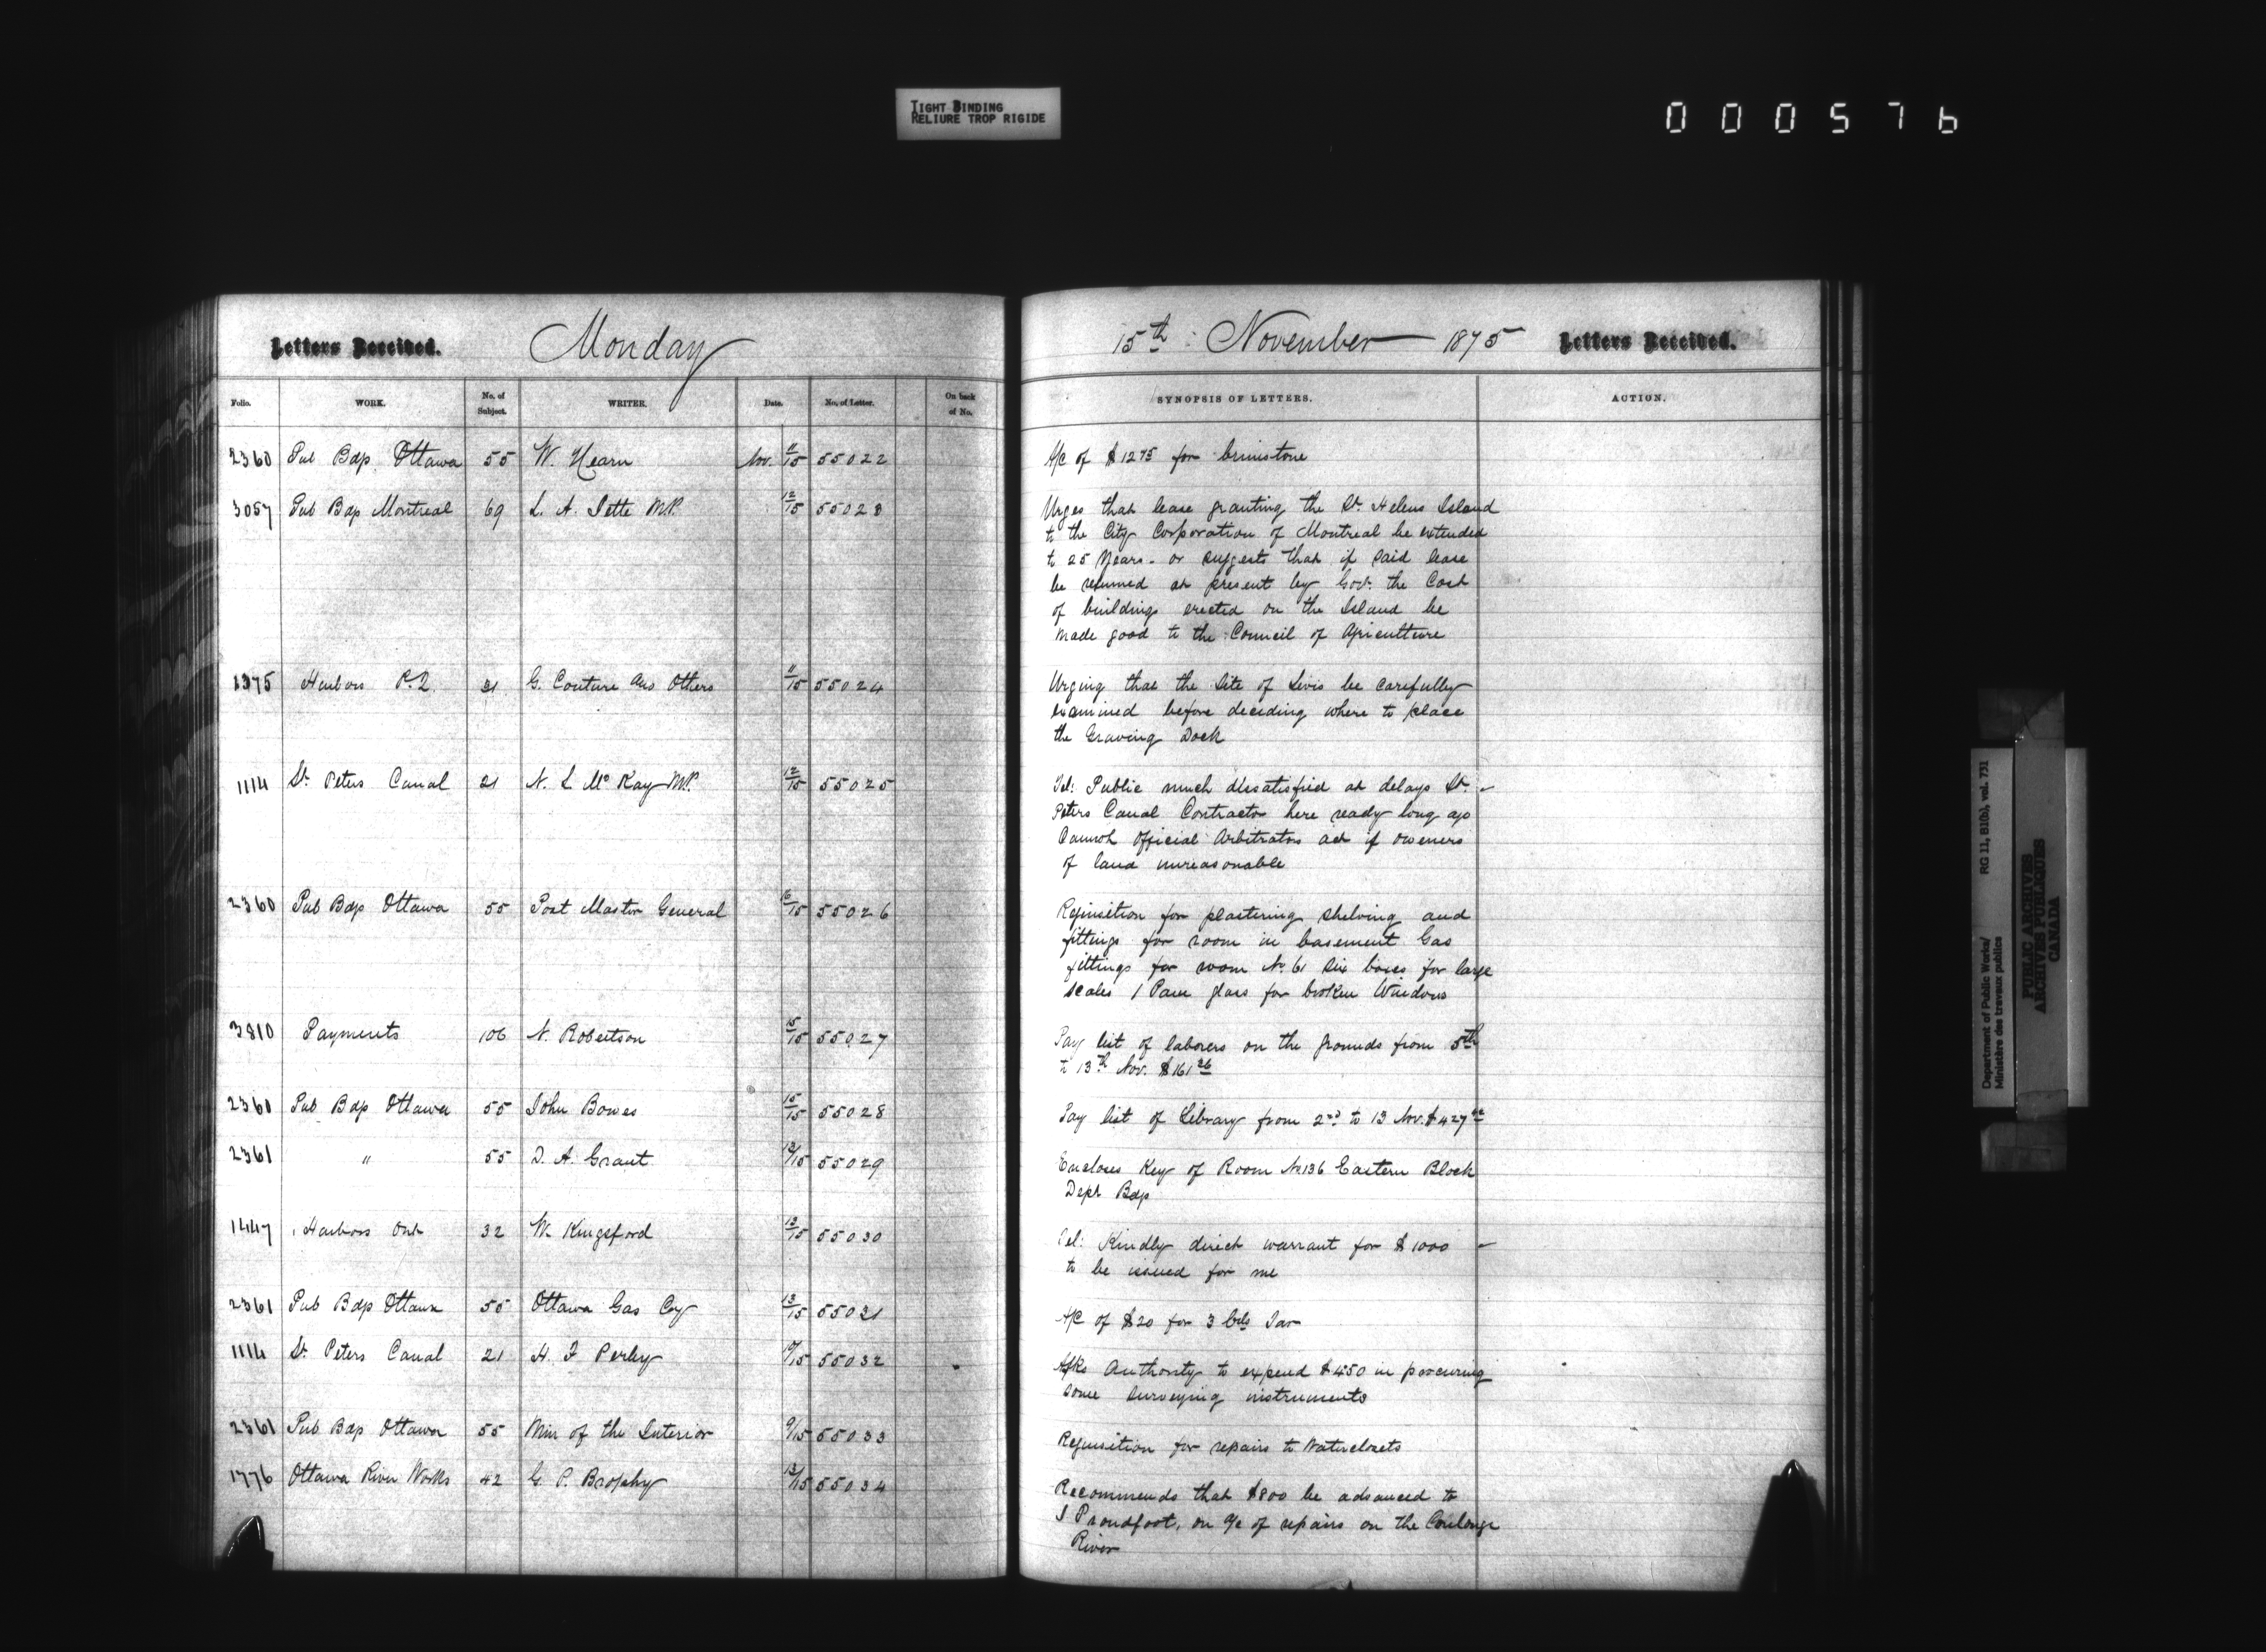 TIGHT BINDING
RELIURE TROP RIGIDE
000576
Letters Received. Monday
Folio. WORK. No. of Subject. WRITER. Date. No. of Letter. On back of No.
2360 Pub Bdgs Ottawa 55 W. Hearn Nov. 11/15 55022
3057 Pub Bdgs Montreal 69 L. A. Jette M.P. 12/15 55023
1375 Harbors P.Q. 31 G. Couture and Others 11/15 55024
1114 St. Peters Canal 21 N. L McKay M.P. 12/15 55025
2360 Pub Bdgs Ottawa 55 Post Master General 55026
3810 Payments 106 N. Robertson 15/15 55027
2360 Pub Bdgs Ottawa 55 John Bowes 15/15 55028
2361 " 55 D. A. Grant 55029
1447 Harbors Ont 32 W. Kingsford 13/15 55030
2361 Pub Bdgs Ottawa 55 Ottawa Gas Coy 13/15 55031
1114 St. Peters Canal 21 H. F Perley 55032
2361 Pub Bdgs Ottawa 55 Min of the Interior 9/15 55033
1776 Ottawa River Works 42 G. P. Brophy 13/15 55034
15th November 1875 Letters Received.
SYNOPSIS OF LETTERS. ACTION.
A/C of $1275 for brimstone
Urges that lease granting the St. Helens Island
to the City Corporation of Montreal be extended
to 25 Years - or suggests that if said lease
be resumed at present by Govt. the Cost
of buildings erected on the Island be
made good to the Council of Agriculture
Urging that the Site of Levis be carefully
examined before deciding where to place
the Graving Dock
Tel: Public much dissatisfied at delays St.
Peters Canal Contractor here ready long ago
Cannot Official Arbitrators act if owners
of land unreasonable
Requisition for plastering shelving and
fittings for room in basement Gas
fittings for room No. 61 Six boxes for large
scales 1 Pane glass for broken Windows
Pay list of laborers on the grounds from 5th
to 13th Nov. $161 26
Pay list of Library from 2nd to 13 Nov. $427
Encloses Key of Room No 136 Eastern Block
Dept Bdgs
Tel: Kindly direct warrant for $1000
to be issued for me
A/C of $20 for 3 brls Tar
Asks Authority to expend $450 in procuring
some surveying instruments
Requisition for repairs to Waterclosets
Recommends that $800 be advanced to
J Proudfoot, on a/c of repairs on the Coulonge
River
Department of Public Works/
Ministère des travaux publics
RG 11, B1(b), vol. 731
PUBLIC ARCHIVES
ARCHIVES PUBLIQUES
CANADA